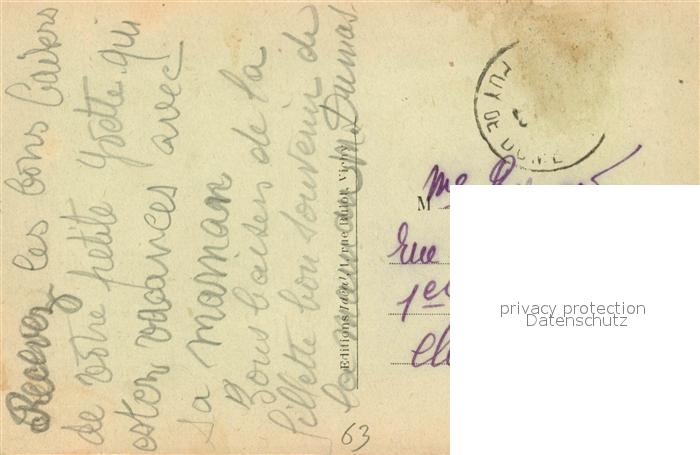 Recevez les bons baisers
de votre petite Yvette qui
est en vacances avec
sa maman
Bons baisers de la
fillette bon souvenir de
la maman M Dumas
Editions Vichy
PUY DE DOME
M
Rue
1er
63
privacy protection
Datenschutz